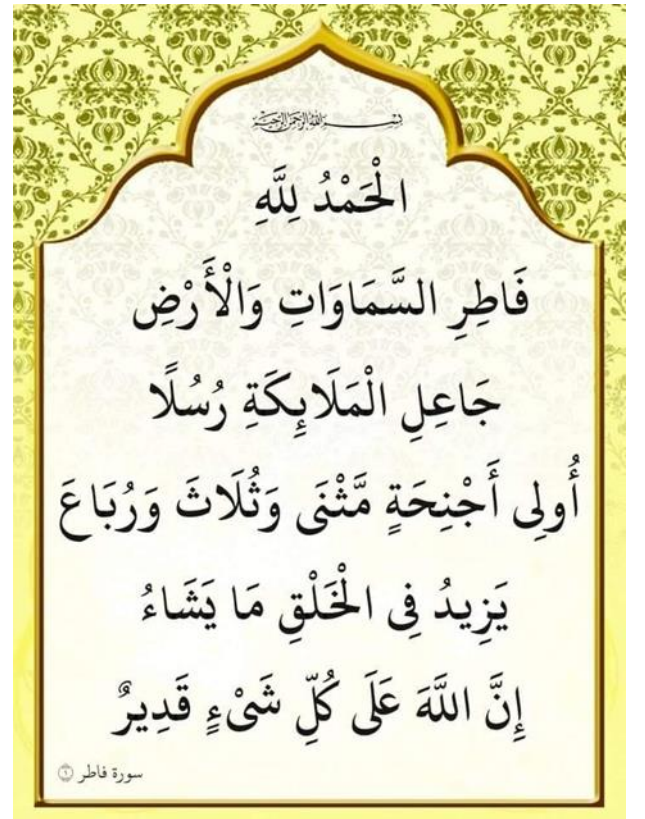 بسم الله الرحمن الرحيم
الْحَمْدُ لِلَّهِ
فَاطِرِ السَّمَاوَاتِ وَالْأَرْضِ
جَاعِلِ الْمَلَائِكَةِ رُسُلًا
أُولِى أَجْنِحَةٍ مَّثْنَى وَثُلَاثَ وَرُبَاعَ
يَزِيدُ فِى الْخَلْقِ مَا يَشَاءُ
إِنَّ اللَّهَ عَلَى كُلِّ شَىْءٍ قَدِيرٌ
سورة فاطر ١